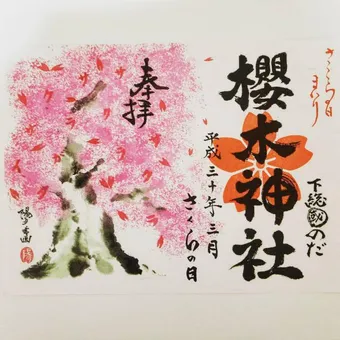 さくらの日
まいり
櫻木神社
下総國のだ
奉拝
平成三十年三月
さくらの日